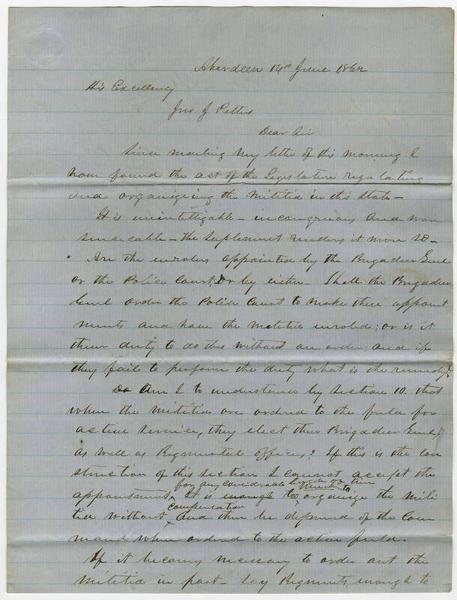 Aberdeen 14th June 1862
His Excellency
Jno J Pettus
Dear Sir
Since mailing my letter of this morning I
have found the act of the Legislature regulating
and organizing the Militia in this State—
It is unintelligable— incongrious and non
senceable— the Suplement renders it more so—
Are the inrolers appointed by the Brigadier Genl
or the Police Court, or by either— Shall the Brigadier
Genl order the Police Court to make these appoint
ments and have the Militia inroled; or is it
their duty to do this without an order; and if
they fail to perform the duty what is the remedy?
Do Am I to understand by Section 10. that
when the Militia are ordered to the field for
active service, they elect their Brigadier Genl
as well as Regimental officers? If this is the con
struction of this section I cannot accept the
for any considerable length of time
appointment, It is enough to organize the Mili
compensation
tia without and then be deprived of the Com
mand when ordered to the active field.
If it becomes necessary to order out the
Militia in part— say Regiments enough to